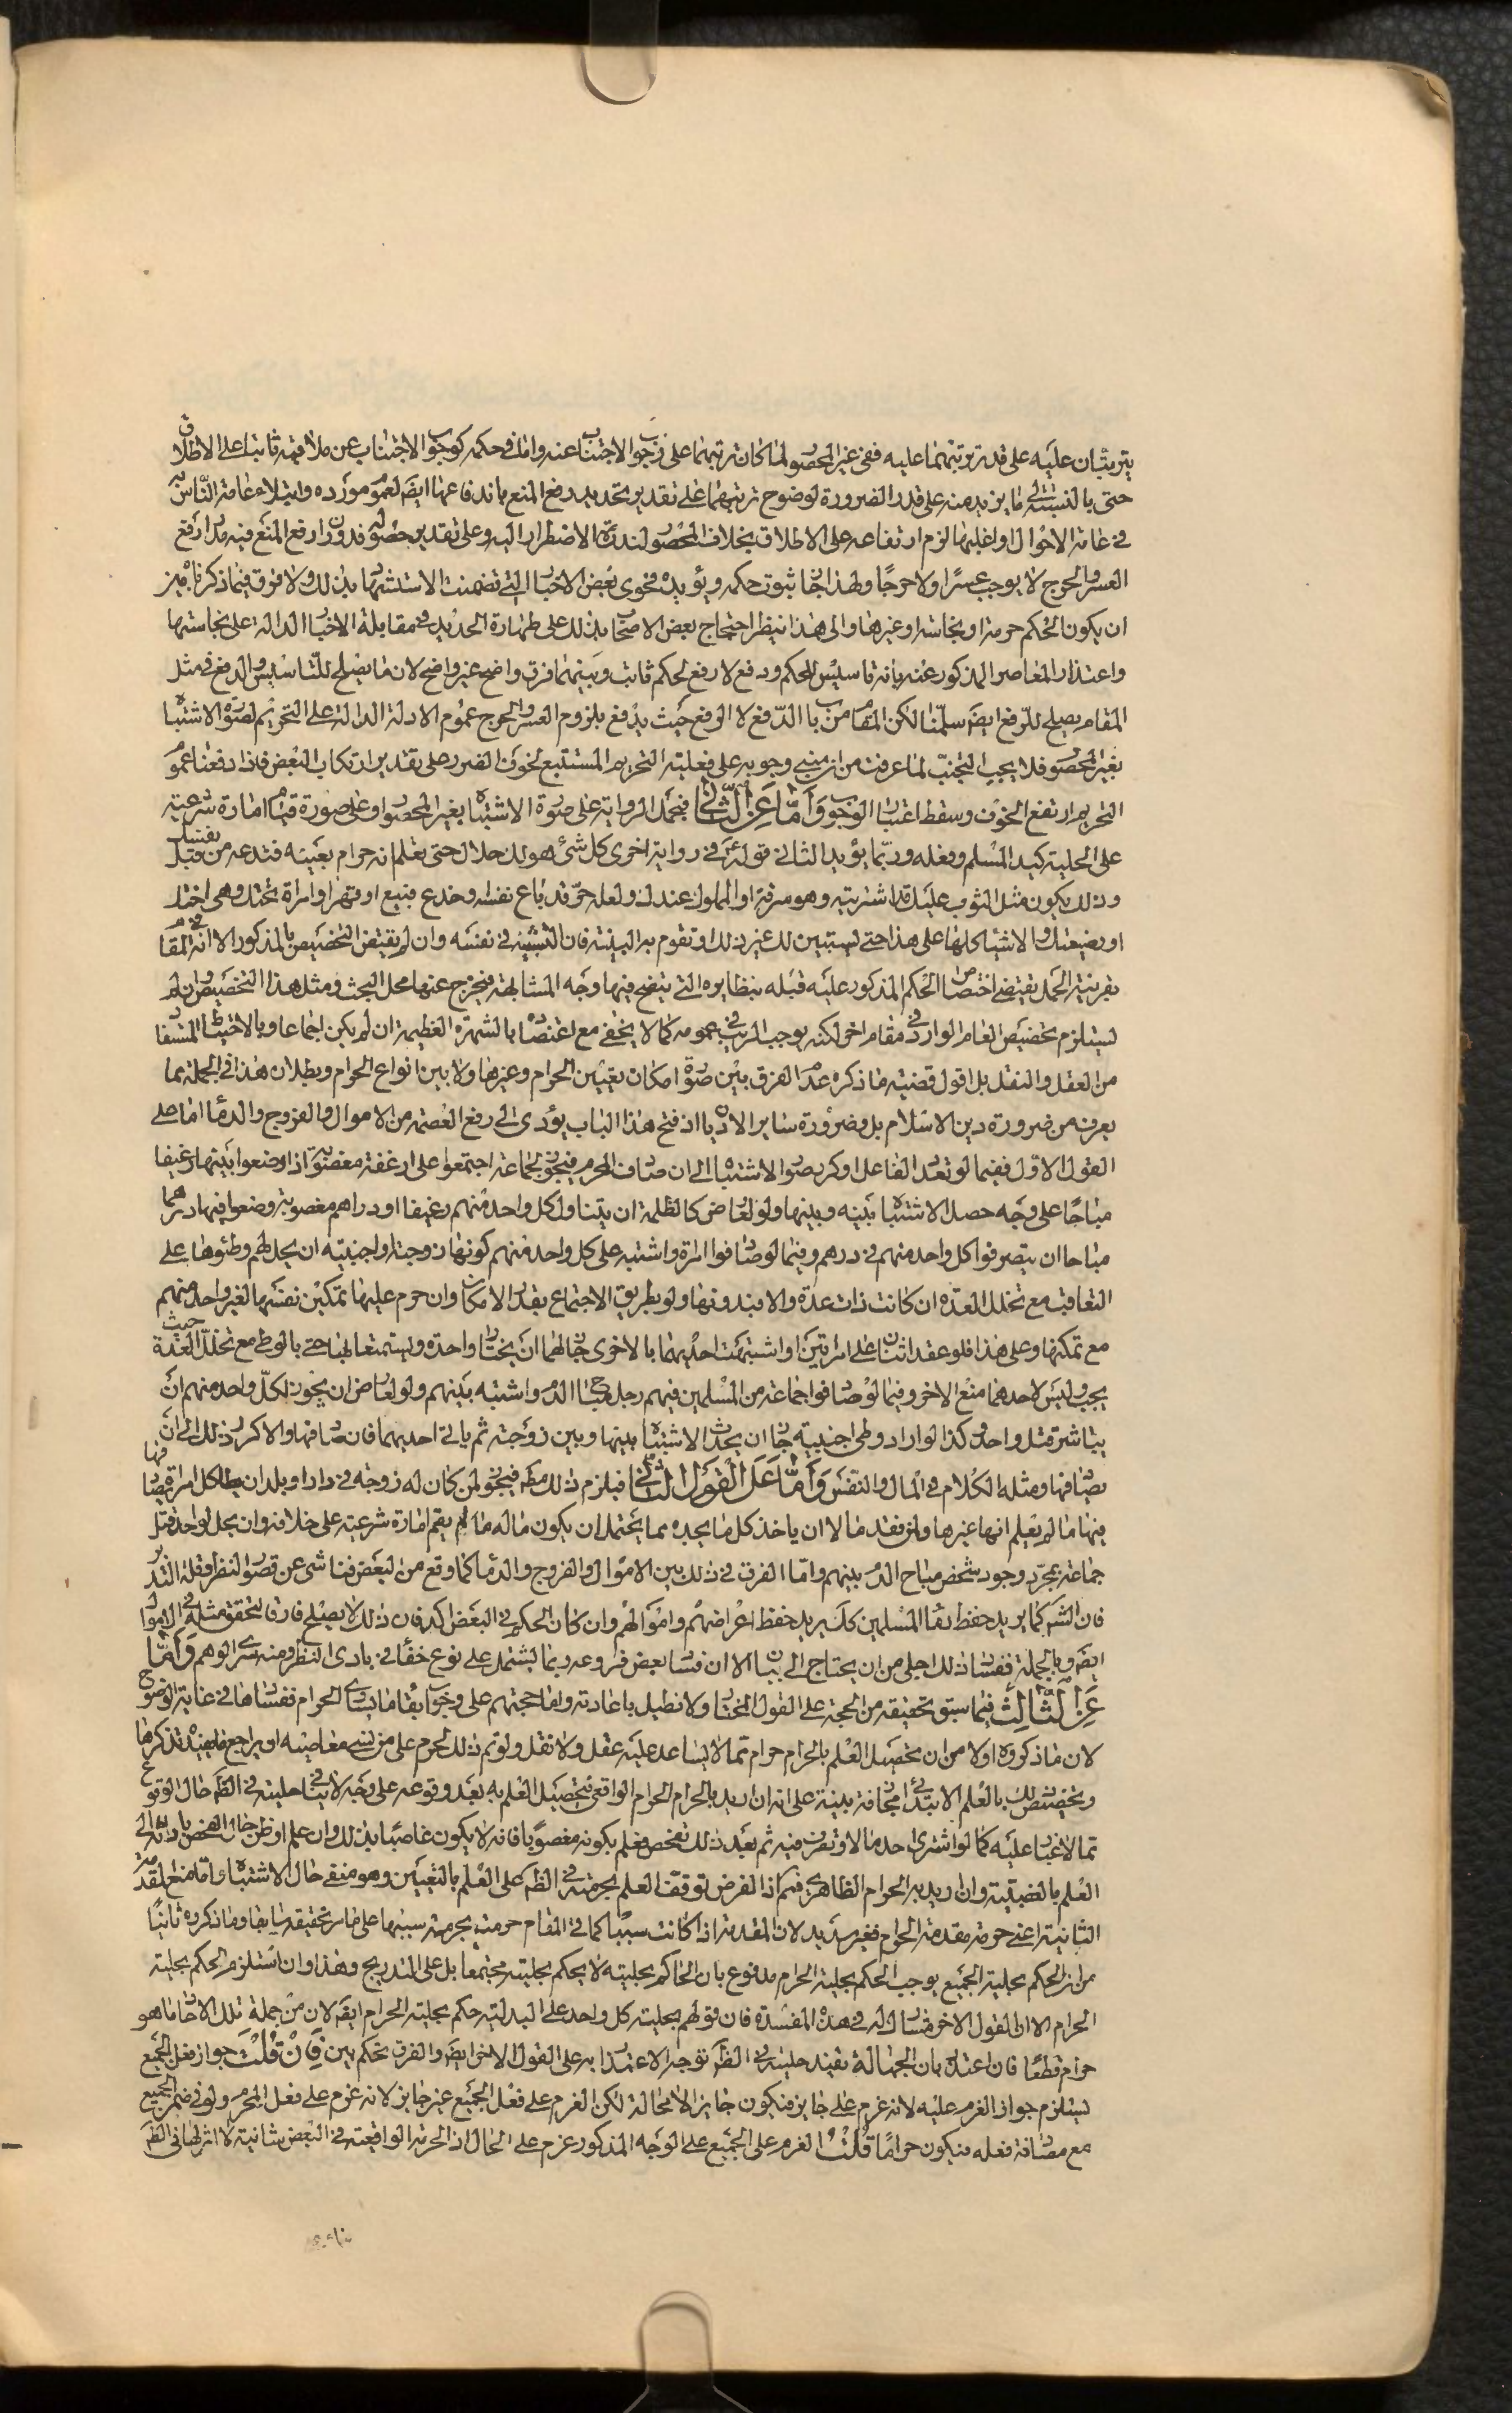 يترتبان عليه على قدر ترتبهما عليه ففي غير المحصور لما كان ترتبهما على وجوب الاجتناب عنه وما في حكمه كوجوب الاجتناب عن ملاقيه ثابتا على الاطلاق
حتى بالنسبة الى ما يزيد منه على قدر الضرورة لوضوح ترتبهما على تقدير تحديد رفع المنع باندفاعها ايضا لعموم مورده وابتلاء عامة الناس به
في عامة الاحوال او اغلبها لزم ارتفاعه على الاطلاق بخلاف المحصور لندرة الاضطرار اليه وعلى تقدير حصوله فدوران رفع المنع فيه مدار رفع
العسر والحرج لا يوجب عسرا ولا حرجا ولهذا جاز ثبوت حكمه ويؤيده فحوى بعض الاخبار التي تضمنت الاستشهاد بذلك ولا فرق فيما ذكرنا بين
ان يكون الحكم حرمة او نجاسة او غيرهما والى هذا ينظر احتجاج بعض الاصحاب بذلك على طهارة الحديد في مقابلة الاخبار الدالة على نجاستها
واعتذار المعاصر المذكور عنه بانه تاسيس للحكم ودفع لا رفع لحكم ثابت وبينهما فرق واضح غير واضح لان ما يصلح للتاسيس والدفع في مثل
المقام يصلح للرفع ايضا سلمنا لكن المقام من باب الدفع لا الرفع حيث يدفع بلزوم العسر والحرج عموم الادلة الدالة على التحريم لصورة الاشتباه
بغير المحصور فلا يجب التجنب لما عرفت من ان مبنى وجوبه على فعلية التحريم المستتبع لخوف الضرر على تقدير ارتكاب البعض فاذا دفعنا عموم
التحريم ارتفع الخوف وسقط اعتبار الوجوب وَأَمَّا عَنِ الثَّانِي فبحمل الرواية على صورة الاشتباه بغير المحصور او على صورة قيام امارة شرعية
على الحلية كيد المسلم وفعله وربما يؤيد الثاني قوله ع في رواية اخرى كل شئ هو لك حلال حتى تعلم انه حرام بعينه فتدعه من قبل نفسك
وذلك يكون مثل الثوب عليك قد اشتريته وهو سرقة او المملوك عندك ولعله حر قد باع نفسه او خدع فبيع او قهر او امراة تحتك وهي اختك
او رضيعتك والاشياء كلها على هذا حتى يستبين لك غير ذلك او تقوم به البينة فان التشبيه في نفسه وان لم يقتض التخصيص بالمذكور الا انه في المقام
بقرينة الحمل يقتضي اختصاص الحكم المذكور عليه قبله بنظايره التي يتضح فيها وجه المشابهة فيخرج عنها محل البحث ومثل هذا التخصيص وان لم
يستلزم تخصيص العام الوارد في مقام اخر لكنه يوجب الريب في عمومه كما لا يخفى مع اعتضاده بالشهرة العظيمة ان لم يكن اجماعا وبالاحتياط المستفاد
من العقل والنقل بل اقول قضية ما ذكره عدم الفرق بين صورة امكان تعيين الحرام وغيرها ولا بين انواع الحرام وبطلان هذا في الجملة مما
يعرف من ضرورة دين الاسلام بل وضرورة ساير الاديان اذ فتح هذا الباب يؤدي الى رفع العصمة من الاموال والفروج والدماء اما على
القول الاول ففيما لو تعدد الفاعل او كرر صور الاشتباه الى ان صادف المحرم فيجوز لجماعة اجتمعوا على ارغفة مغصوبة اذا وضعوا بينها رغيفا
مباحا على وجه حصل الاشتباه بينه وبينها ولو لعارض كالظلمة ان يتناول كل واحد منهم رغيفا او دراهم مغصوبة وضعوا فيها درهما
مباحا ان يتصرفوا كل واحد منهم في درهم وفيما لو صادفوا امراة واشتبه على كل واحد منهم كونها زوجته او اجنبية ان يحل لهم وطئوها على
التعاقب مع تخلل العدة ان كانت ذات عدة والا فبدونها ولو بطريق الاجتماع بقدر الامكان وان حرم عليها تمكين نفسها لغير واحد منهم
مع تمكنها وعلى هذا فلو عقد اثنان على امراتين او اشتبهت احديهما بالاخرى جاز لهما ان يختارا واحدة ويستمتعا بها حتى بالوطى مع تخلل العدة حيث
يجب وليس لاحدهما منع الاخر وفيما لو صادفوا جماعة من المسلمين فيهم رجل مباح الدم واشتبه بينهم ولو لعارض ان يجوز لكل واحد منهم ان
يباشر قتل واحد وكذا لو اراد وطى اجنبية جاز ان يحدث الاشتباه بينها وبين زوجته ثم ياتي احديهما فان صادفها والا كرر ذلك الى ان
يصادفها ومثله الكلام في المال والنفس وَأَمَّا عَلَى الْقَوْلِ الثَّانِي فيلزم ذلك مطلقا فيجوز لمن كان له زوجة في دار او بلد ان يطأ كل امراة يصادفها
فيها ما لم يعلم انها غيرها ولمن فقد مالا ان ياخذ كل ما يجده مما يحتمل ان يكون ماله ما لم يقم امارة شرعية على خلافه وان يحل لواحد قتل
جماعة بمجرد وجود شخص مباح الدم بينهم واما الفرق في ذلك بين الاموال والفروج والدماء كما وقع من البعض فناشئ عن قصور النظر وقلة التدبر
فان الشرع كما يريد حفظ دماء المسلمين كذلك يريد حفظ اعراضهم واموالهم وان كان الحكم في البعض اكد فان ذلك لا يصلح فارقا لتحقق مثله في الاموال
ايضا وبالجملة ففساد ذلك اجلى من ان يحتاج الى بيان الا ان فساد بعض فروعه ربما يشتمل على نوع خفاء في بادي النظر ومنه سرى الوهم وَأَمَّا
عَنِ الثَّالِثِ فبما سبق تحقيقه من الحجة على القول المختار ولا نطيل باعادته واما حجتهم على وجوب ابقاء ما يساوي الحرام ففسادها في غاية الوضوح
لان ما ذكروه اولا من ان تحصيل العلم بالحرام حرام مما لا يساعد عليه عقل ولا نقل ولو تم ذلك لحرم على من نسي معاصيه ان يراجع ما يفيده تذكرها
وتخصيص ذلك بالعلم الابتدائي مجازفة بينة على انه ان اريد بالحرام الحرام الواقعي فتحصيل العلم به بعد وقوعه على وجه لا ينافي حليته في الظاهر حال الوقوع
مما لا غبار عليه كما لو اشترى احد مالا وتصرف فيه ثم بعد ذلك تفحص فعلم بكونه مغصوبا فانه لا يكون غاصبا بذلك وان علم او ظن حال الفحص بادائه الى
العلم بالغصبية وان اريد به الحرام الظاهري فيهما اذ الفرض توقف العلم بحرمته في الظاهر على العلم بالتعيين وهو منفي حال الاشتباه واما منع المقدمة
الثانية اعني حرمة مقدمة الحرام فغير سديد لان المقدمة اذا كانت سببا كما في المقام حرمت بحرمة سببها على ما مر تحقيقه سابقا وما ذكروه ثانيا
من ان الحكم بحلية الجميع يوجب الحكم بحلية الحرام مدفوع بان الحاكم بحليته لا يحكم بحليته مجتمعا بل على التدريج وهذا وان استلزم الحكم بحلية
الحرام الا ان القول الاخر مشارك له في هذه المفسدة فان قولهم بحلية كل واحد على البدلية حكم بحلية الحرام ايضا لان من جملة تلك الاحاد ما هو
حرام قطعا فان اعتذر بان الجهالة تفيد حليته في الظاهر توجه الاعتذار به على القول الاخر ايضا والفرق تحكم بين فَإِنْ قُلْتَ جواز فعل الجميع
يستلزم جواز العزم عليه لانه عزم على جايز فيكون جايزا لا محالة لكن العزم على فعل الجميع غير جايز لانه عزم على فعل المحرم ولو في ضمن الجميع
مع مصادفة فعله فيكون حراما قُلْتُ العزم على الجميع على الوجه المذكور عزم على الحلال اذ الحرمة الواقعية في البعض شانية لا اثر لها في الظاهر